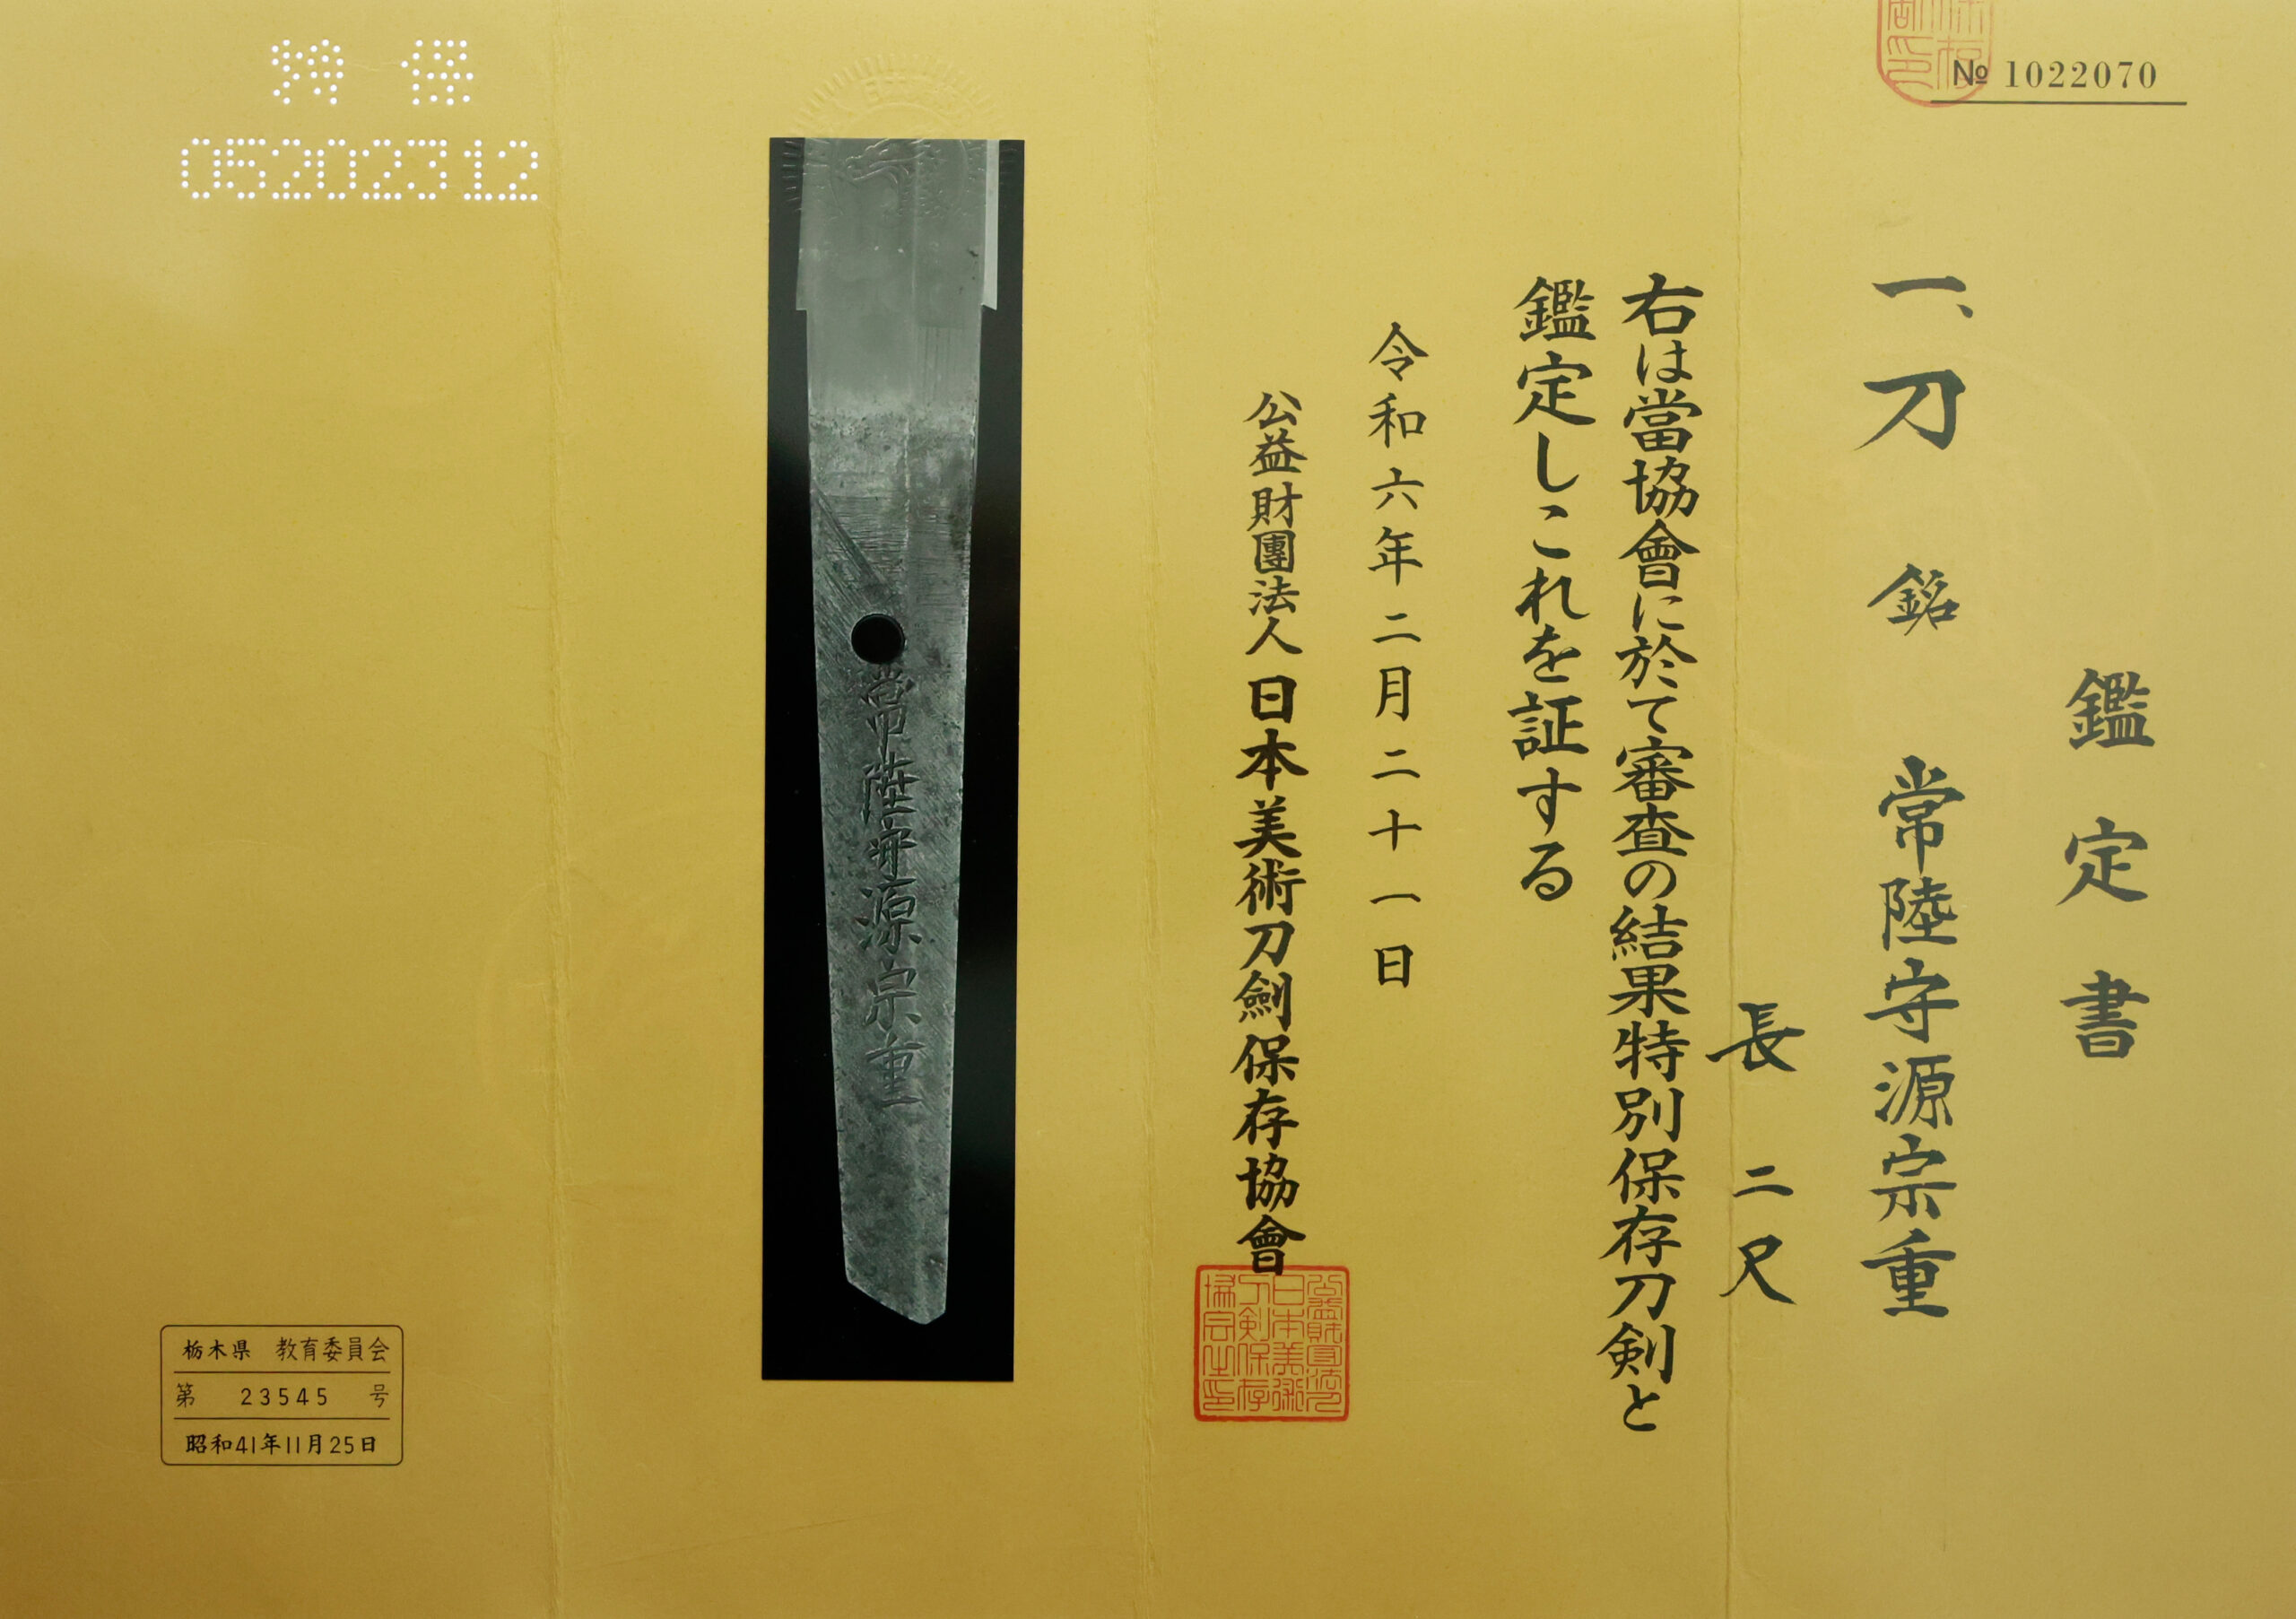 № 1022070
鑑定書
一、刀 銘 常陸守源宗重
長 二尺
右は當協會に於て審査の結果特別保存刀剣と
鑑定しこれを証する
令和六年二月二十一日
公益財團法人 日本美術刀劍保存協會
常陸守源宗重
特保
05202312
栃木県 教育委員会
第 23545 号
昭和41年11月25日